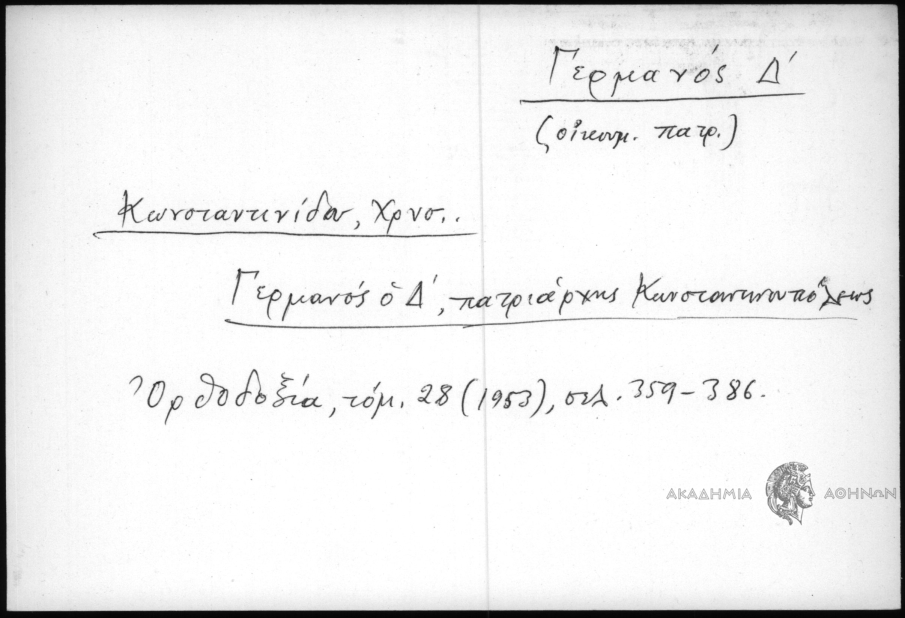 Γερμανός Δ'
(οἰκουμ. πατρ.)
Κωνσταντινίδου, Χρυσ..
Γερμανός ὁ Δ', πατριάρχης Κωνσταντινουπόλεως
Ὀρθοδοξία, τόμ. 28 (1953), σελ. 359-386.
ΑΚΑΔΗΜΙΑ ΑΘΗΝΩΝ